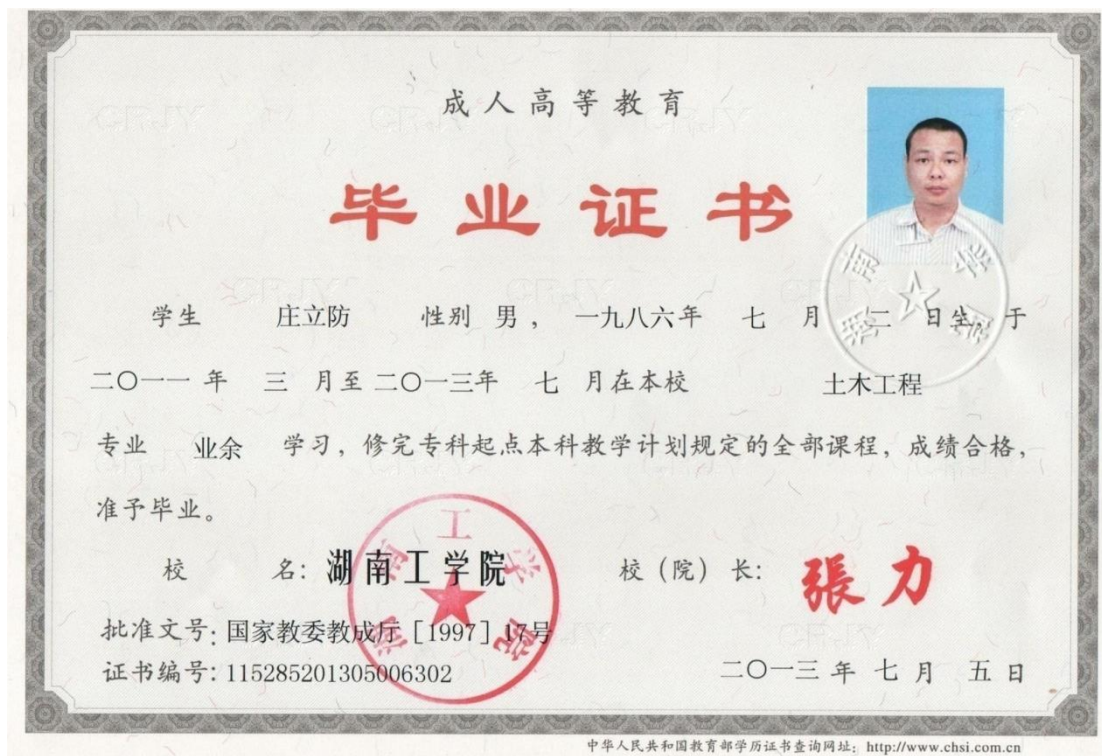 成人高等教育
毕业证书
学生 庄立防 性别 男， 一九八六年 七 月 二 日生，于
二〇一一 年 三 月至 二〇一三年 七 月在本校 土木工程
专业 业余 学习，修完专科起点本科教学计划规定的全部课程，成绩合格，
准予毕业。
校 名：湖南工学院 校（院）长：張力
批准文号：国家教委教成厅［1997］17号
证书编号：115285201305006302 二〇一三 年 七 月 五 日
湖南工学院
中华人民共和国教育部学历证书查询网址：http://www.chsi.com.cn